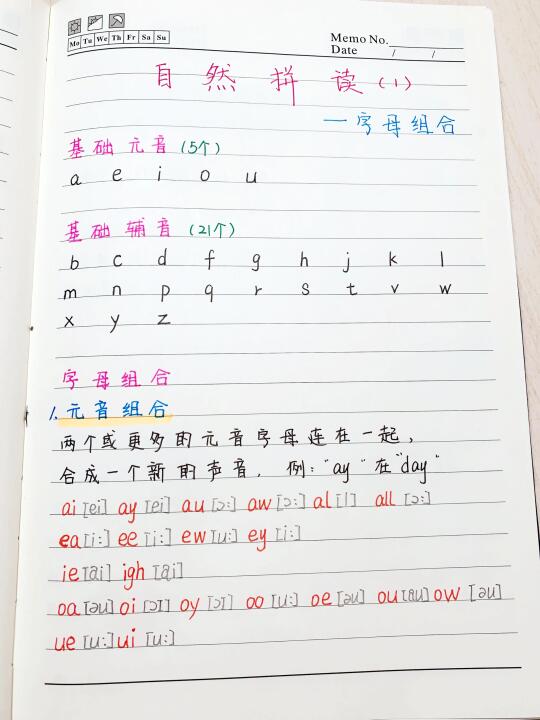 Mo Tu We Th Fr Sa Su
Memo No.
Date / /
自然拼读(1)
—字母组合
基础元音(5个)
a e i o u
基础辅音(21个)
b c d f g h j k l
m n p q r s t v w
x y z
字母组合
1.元音组合
两个或更多的元音字母连在一起,
合成一个新的声音. 例:"ay"在"day"
ai [ei] ay [ei] au [ɔ:] aw [ɔ:] al [l] all [ɔ:]
ea [i:] ee [i:] ew [u:] ey [i:]
ie [ai] igh [ai]
oa [əu] oi [ɔɪ] oy [ɔɪ] oo [u:] oe [əu] ou [au] ow [əu]
ue [u:] ui [u:]